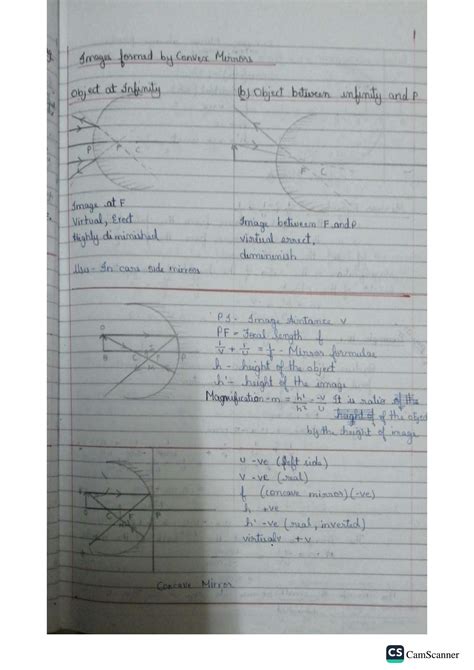 1
Images formed by Convex Mirrors
Object at Infinity
(b) Object between infinity and P
P F C
F C
Image at F
Virtual, Erect
Highly diminished
Image between F and P
virtual errect,
diminish
Use - In cars side mirrors
PI - Image distance v
PF = Focal length f
1/v + 1/u = 1/f - Mirror formulae
h - height of the object
h' - height of the image
Magnification - m = h'/h = -v/u It is ratio of the
height of of the object
by the height of image
u -ve (left side)
v -ve (real)
f (concave mirror) (-ve)
h +ve
h' -ve (real, inverted)
virtual +v
Concave Mirror
CS CamScanner